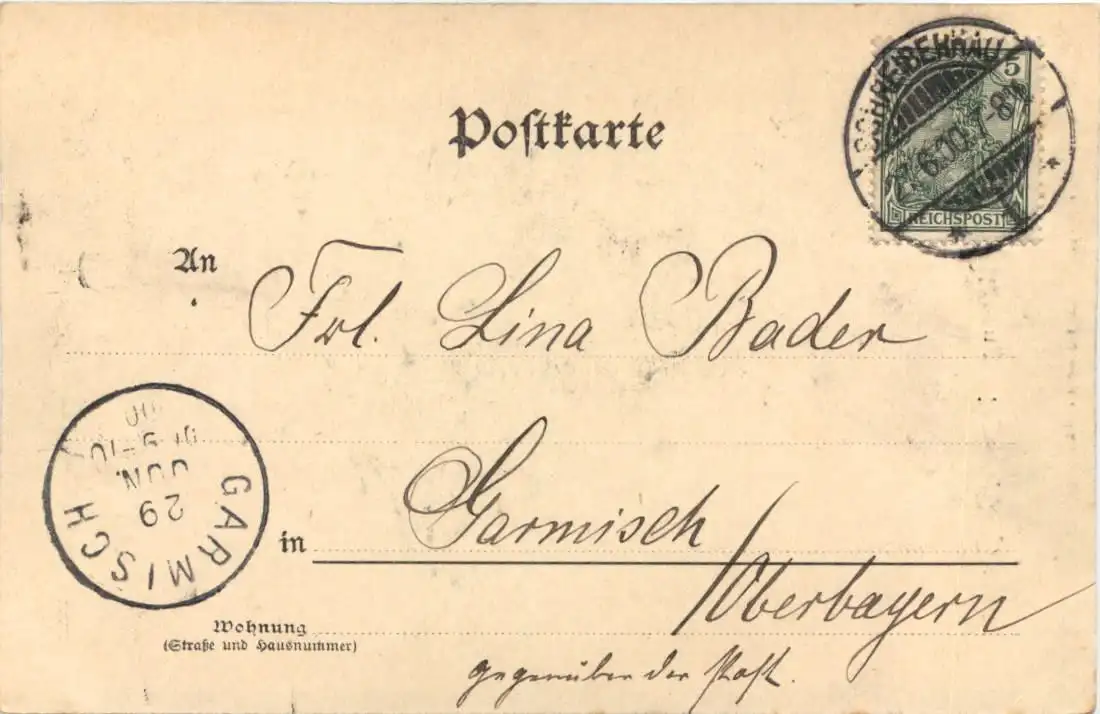 Postkarte
SCHREIBERHAU
5
7-8N
6.00
REICHSPOST
An
Frl. Lina Bader
GARMISCH
29
JUN.
9-10
00
in Garmisch
/Oberbayern
Wohnung
(Straße und Hausnummer)
gegenüber der Post.